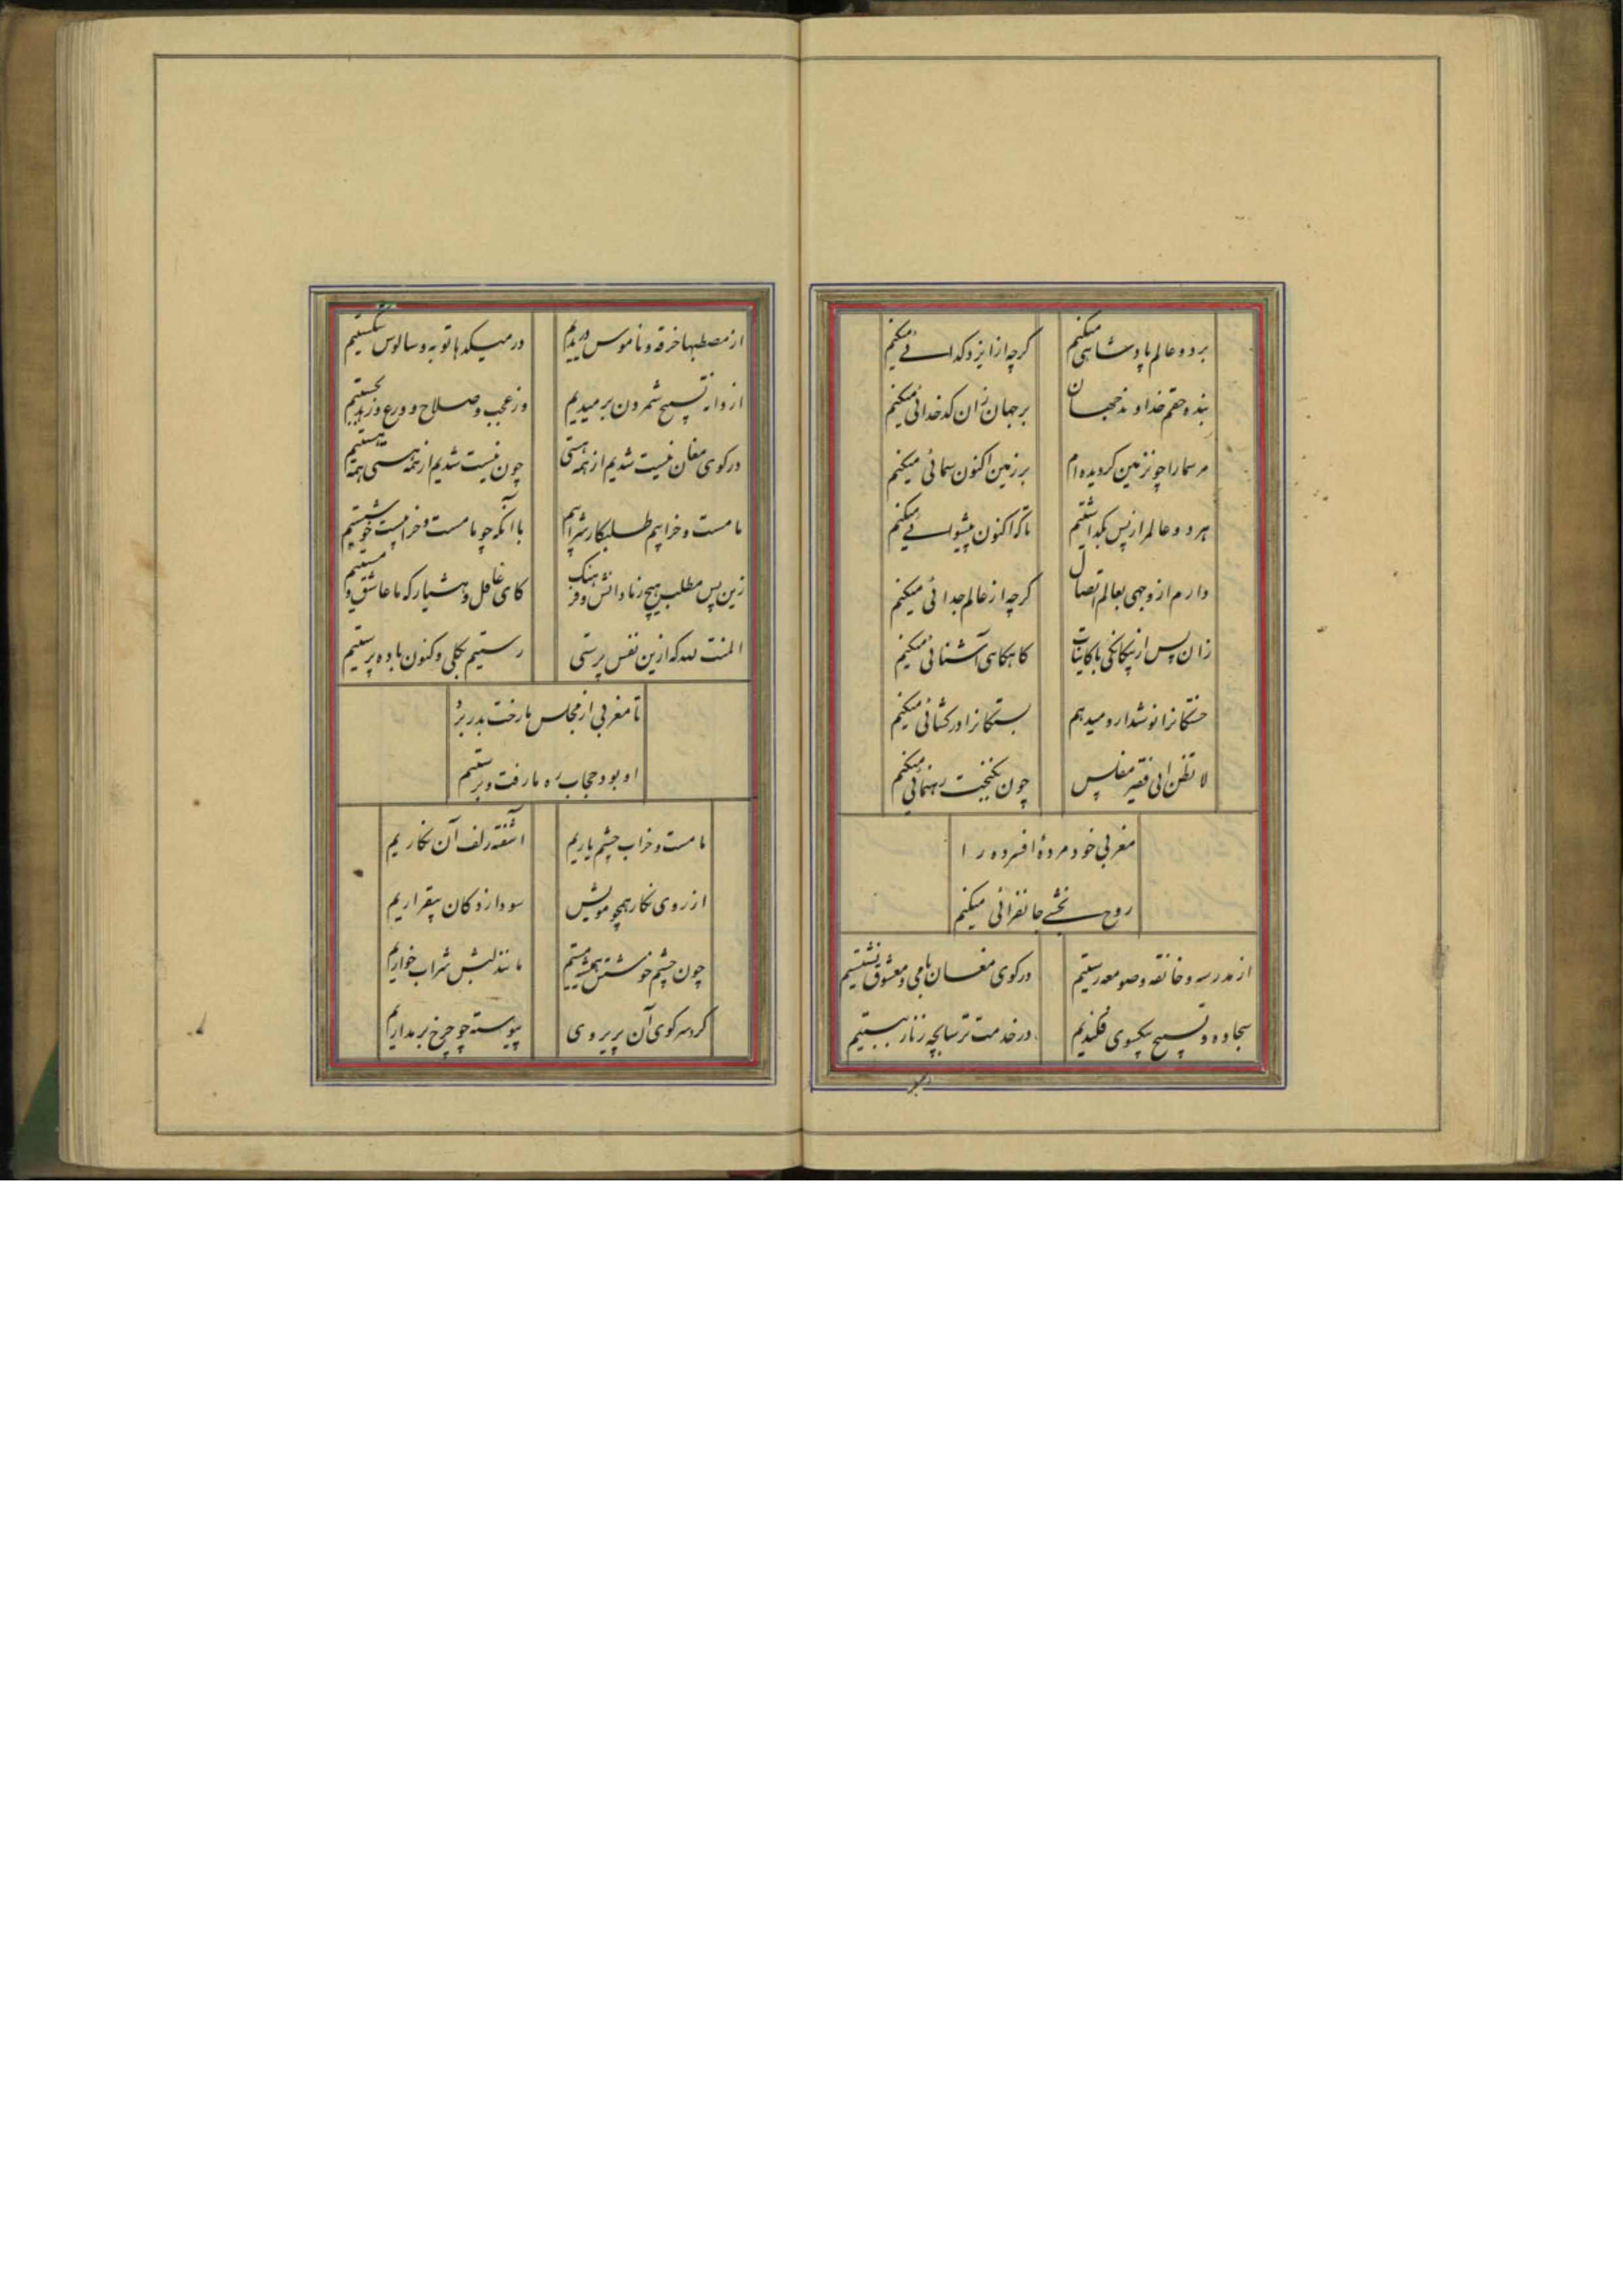 بر دو عالم پادشاهی میکنم
کرچه از ایزد کدائی میکنم
بنده حقم خداوند جهان
بر جهان زان کدخدائی میکنم
مر سما را چون زمین کردیده ام
بر زمین اکنون سمائی میکنم
هر دو عالم را ز پس بکذاشتیم
تا که اکنون پیشوائی میکنم
دارم از وجهی بعالم اتصال
کرچه از عالم جدائی میکنم
زان پس از بیکانکی با کاینات
کاهکاهی آشنائی میکنم
خستکانرا نوشدارو میدهم
بستکانرا درکشائی میکنم
لا تظن انی فقیر مفلس
چون بکنجت رهنمائی میکنم
مغربی خود مردهٔ افسرده را
روح بخشی جانفزائی میکنم
از مدرسه و خانقه و صومعه رستیم
در کوی مغان با می و معشوق نشستیم
سجاده و تسبیح بیکسوی فکندیم
در خدمت ترسابچه زنار ببستیم
از مصطبها خرقه و ناموس دریدیم
در میکدها توبه و سالوس شکستیم
از دانه تسبیح شمردن برمیدیم
وز عجب و صلاح و ورع و زهد بجستیم
در کوی مغان نیست شدیم از همه هستی
چون نیست شدیم از همه هستی همه هستیم
ما مست و خرابیم طلبکار شرابیم
با آنکه چو ما مست و خرابست خوشستیم
زین پس مطلب هیچ ز ما دانش و فرهنک
کای غافل و هشیار که ما عاشق و مستیم
المنت لله که ازین نفس پرستی
رستیم بکلی و کنون باده پرستیم
تا مغربی از مجلس ما رخت بدر برد
او بود حجاب ره ما رفت و برستیم
ما مست و خراب چشم یاریم
آشفته زلف آن نکاریم
از روی نکار همچو مویش
سودازدکان بیقراریم
چون چشم خوشش همیشه مستیم
مانند لبش شراب خواریم
کرد سر کوی آن پریروی
پیوسته چو چرخ بر مداریم